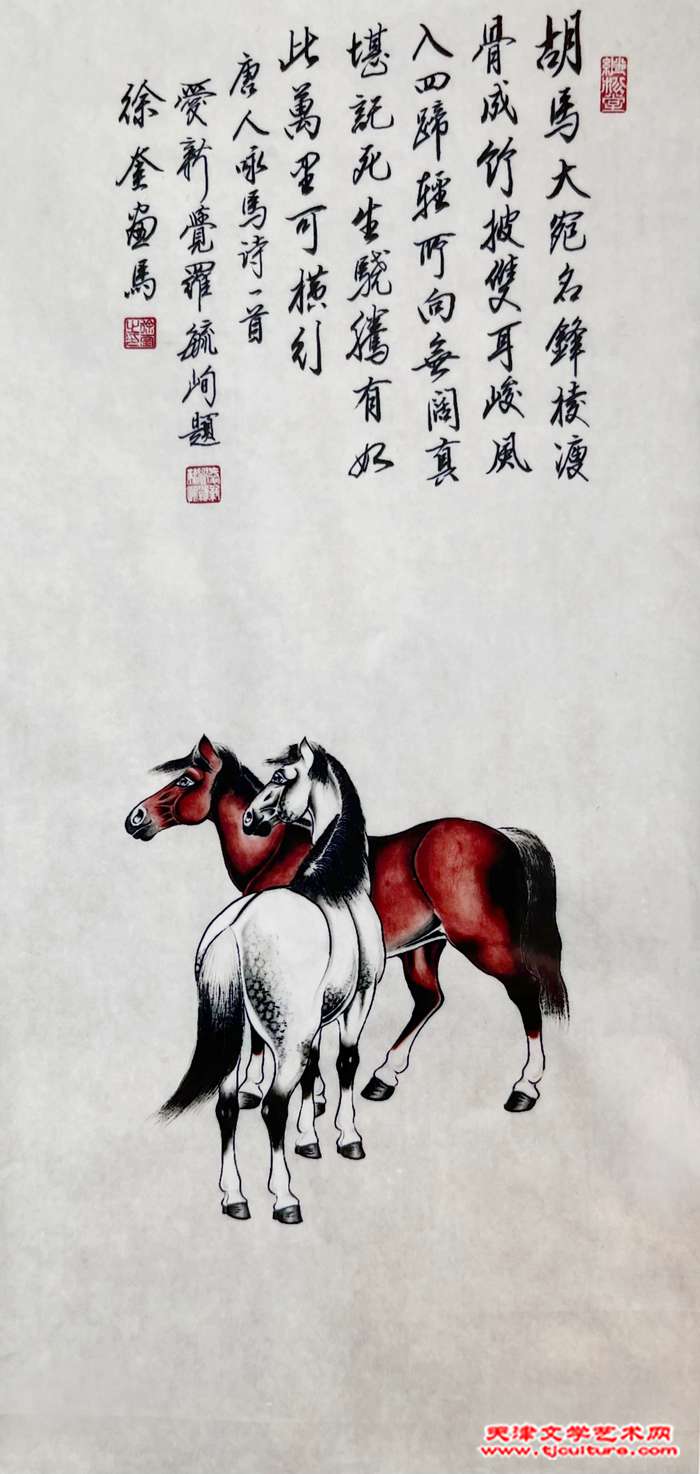 胡馬大宛名鋒棱瘦
骨成竹披雙耳峻風
入四蹄輕所向無闊真
堪託死生驍騰有如
此萬里可橫行
唐人咏馬诗一首
愛新覺羅毓峋題
徐奎畫馬
天津文学艺术网
www.tjculture.com